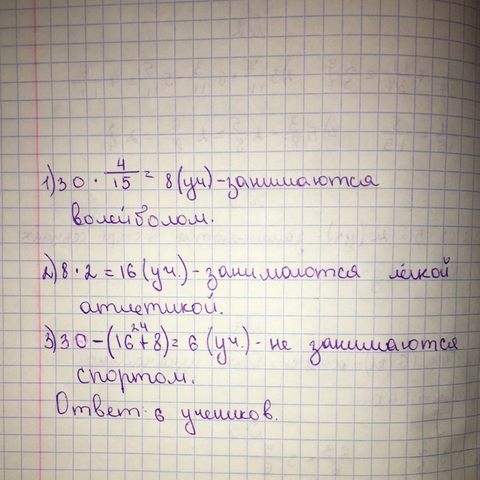 1) 30 · 4/15 = 8 (уч) - занимаются
волейболом.
2) 8 · 2 = 16 (уч.) - занимаются лёгкой
атлетикой.
24
3) 30 - (16 + 8) = 6 (уч.) - не занимаются
спортом.
Ответ: 6 учеников.